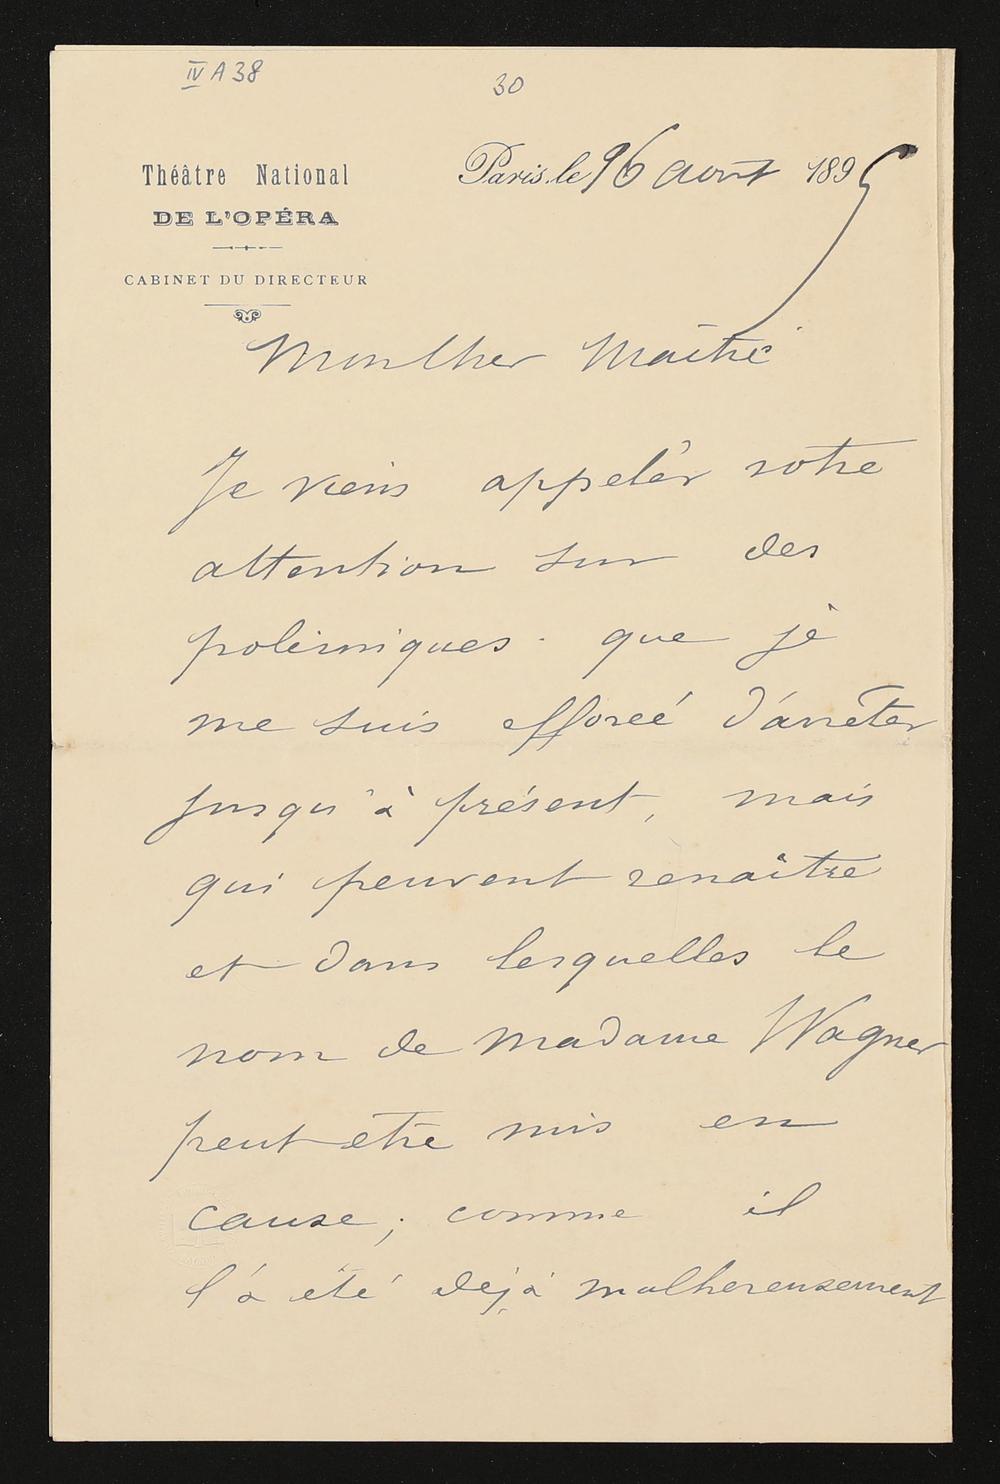 IV A 38
30
Théâtre National
DE L'OPÉRA
CABINET DU DIRECTEUR
Paris, le 26 août 1895
Mon cher Maître
Je viens appeler votre
attention sur des
polémiques que je
me suis efforcé d'arrêter
jusqu'à présent, mais
qui peuvent renaître
et dans lesquelles le
nom de Madame Wagner
peut être mis en
cause, comme il
l'a été déjà malhereusement